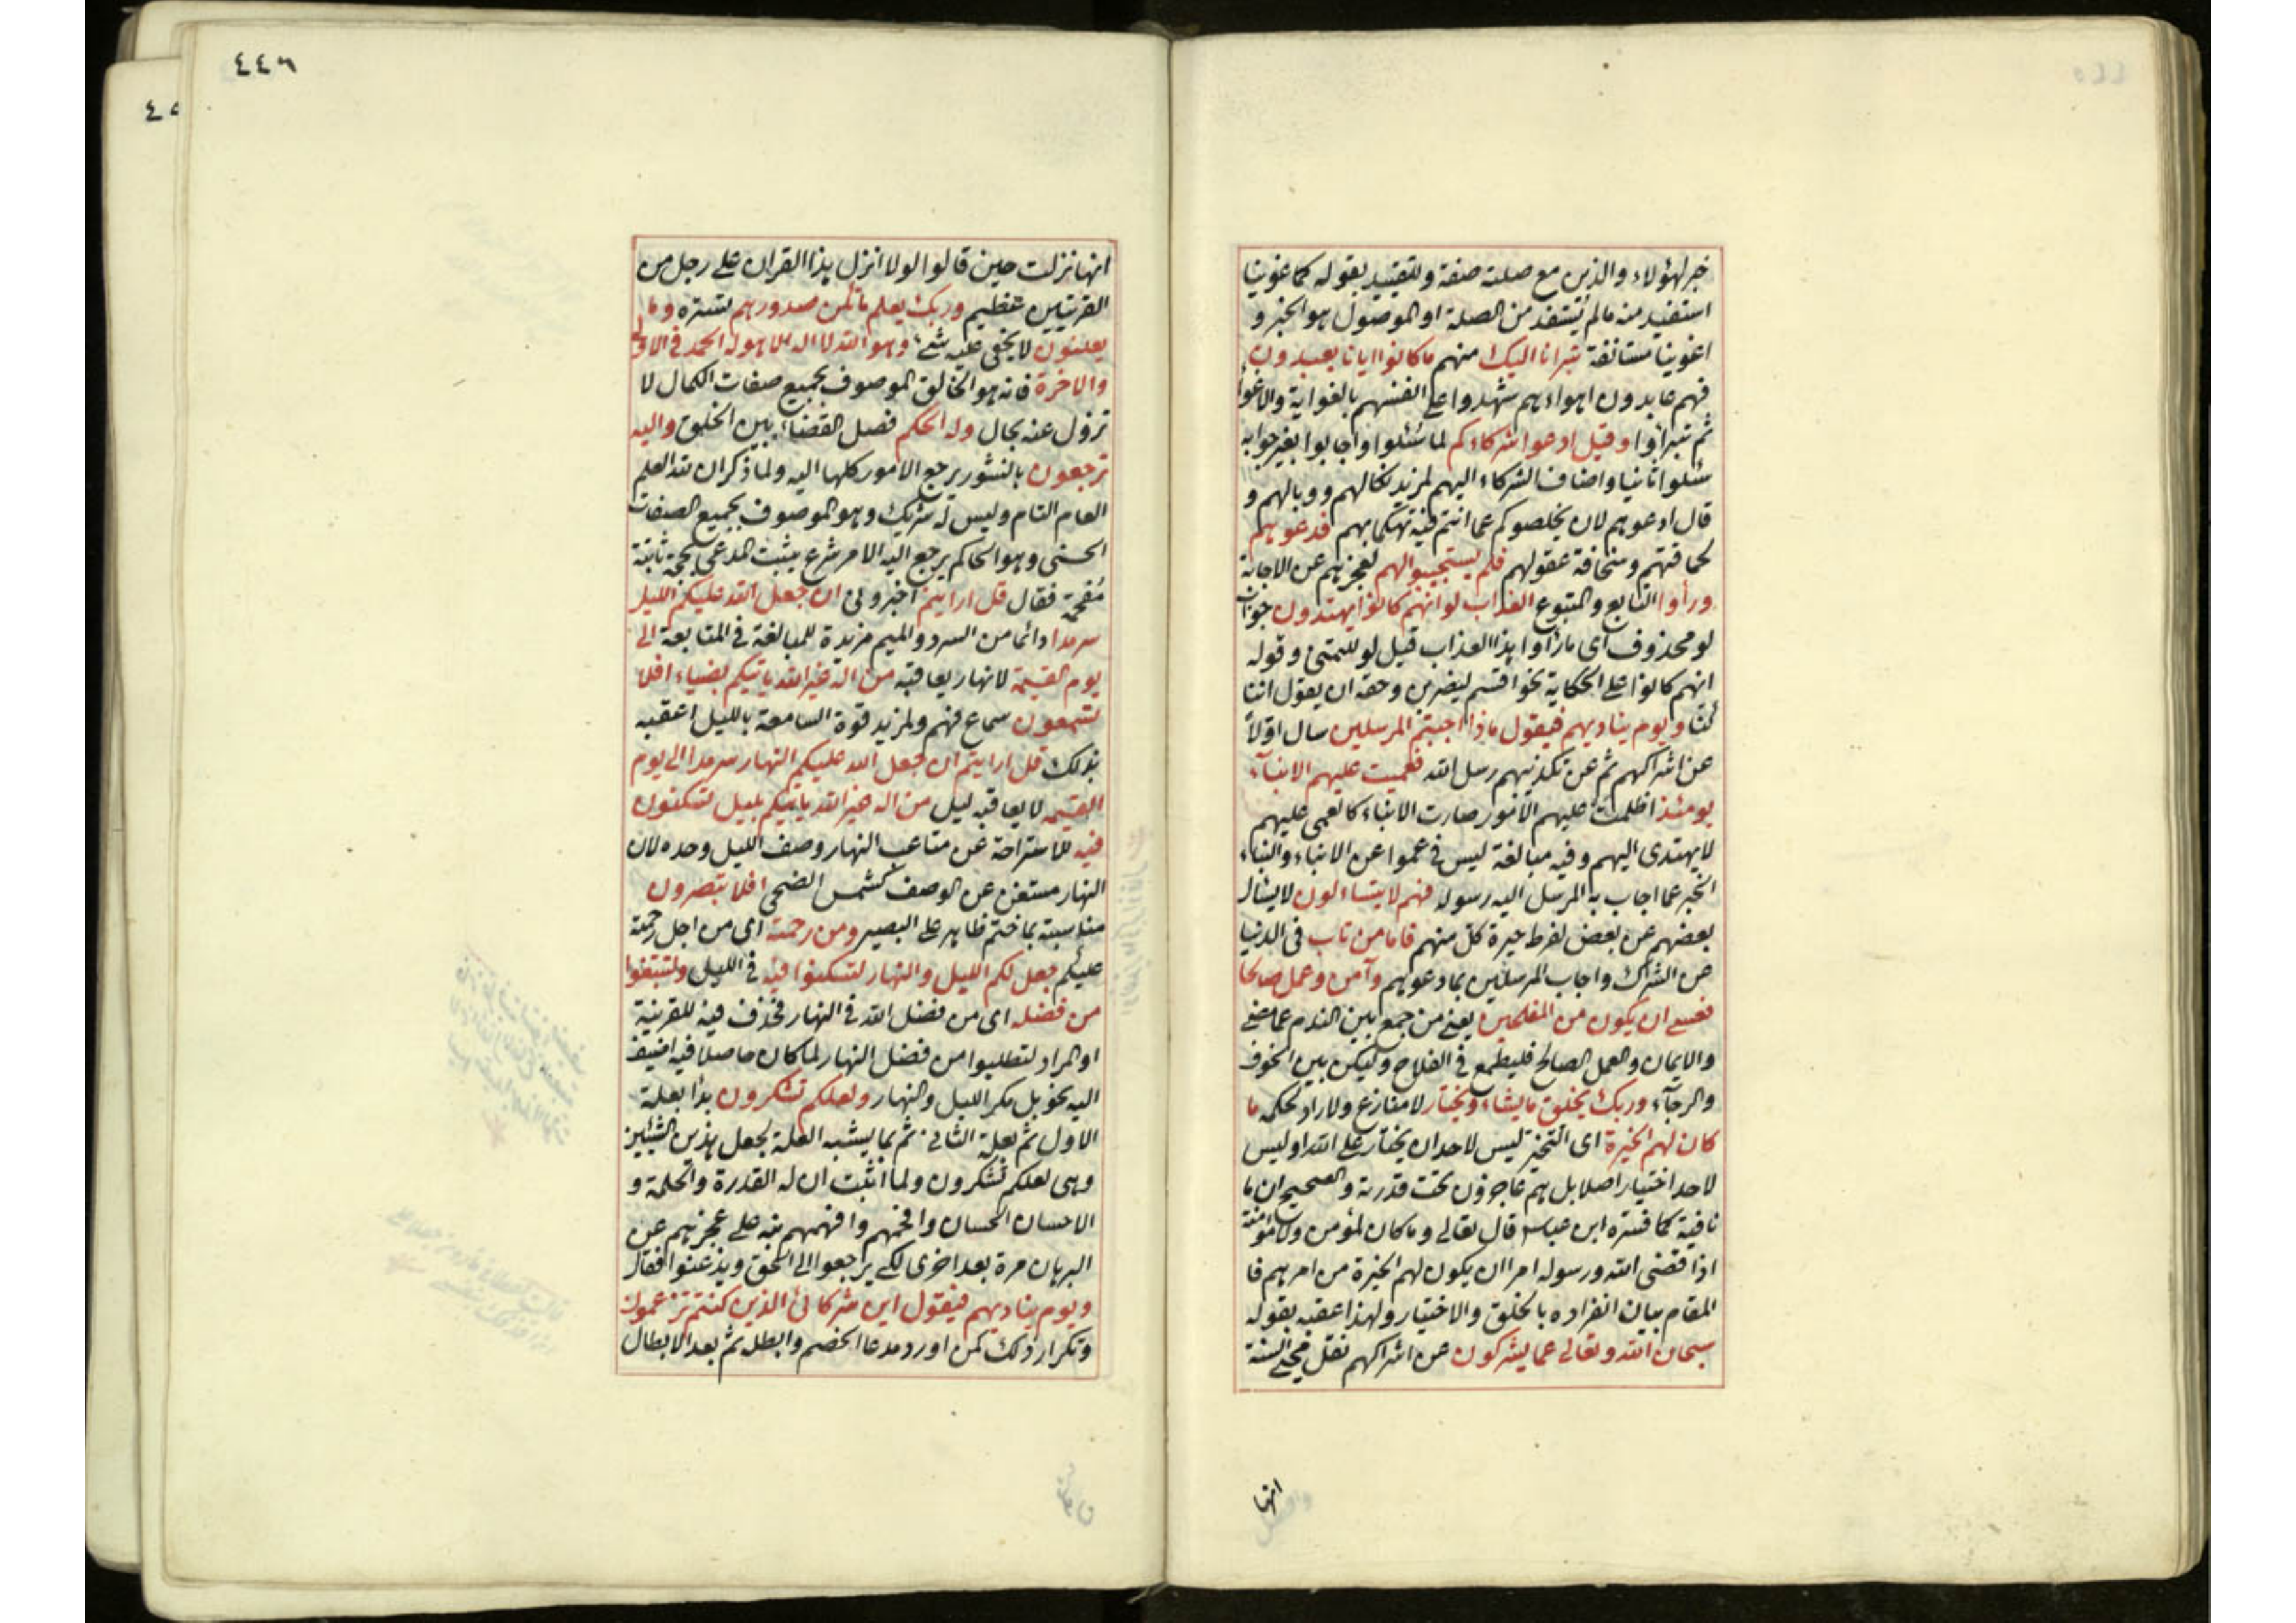 خبر لهؤلاء والذين مع صلته صفة وللتقييد بقوله كما غوينا
استفيد منه ما لم يستفد من الصلة او الموصول هو الخبر و
اغوينا مستانفة تبرانا اليك منهم ما كانوا ايانا يعبدون
فهم عابدون اهواءهم شهدوا على انفسهم بالغواية والاغواء
ثم تبرأوا وقيل ادعوا شركاءكم لما سئلوا واجابوا بغير جوابه
سئلوا ثانيا واضاف الشركاء اليهم لمزيد نكالهم ووبالهم و
قال ادعوهم لان يخلصوكم عما انتم فيه تهكما بهم فدعوهم
لحماقتهم وسخافة عقولهم فلم يستجيبوا لهم لعجزهم عن الاجابة
ورأوا التابع والمتبوع العذاب لو انهم كانوا يهتدون جواب
لو محذوف اى ما رأوا هذا العذاب قيل لو للتمنى وقوله
انهم كانوا على الحكاية نحو اقسم ليضربن وحقه ان يقول اننا
كنا ويوم يناديهم فيقول ماذا اجبتم المرسلين سال اولاً
عن اشراكهم ثم عن تكذيبهم رسل الله فعميت عليهم الانبآء
يومئذ اظلمت عليهم الامور صارت الانباء كالعمى عليهم
لا يهتدى اليهم وفيه مبالغة ليس فى عموا عن الانباء والنباء
الخبر عما اجاب به المرسل اليه رسوله فهم لا يتساالون لا يسال
بعضهم عن بعض لفرط حيرة كل منهم فاما من تاب فى الدنيا
عن الشرك واجاب المرسلين بما دعوهم وآمن وعمل صالحا
فعسى ان يكون من المفلحين يعنى من جمع بين الندم عما مضى
والايمان والعمل الصالح فليطمع فى الفلاح وليكن بين الخوف
والرجآء وربك يخلق ما يشاء ويختار لا منازع ولا راد لحكمه ما
كان لهم الخيرة اى التخير ليس لاحد ان يختار على الله او ليس
لاحد اختيار اصلا بل هم عاجزون تحت قدرته والصحيح ان ما
نافية كما فسره ابن عباس قال تعالى وما كان لمؤمن ولا مؤمنة
اذا قضى الله ورسوله امرا ان يكون لهم الخيرة من امرهم فا
المقام بيان انفراده بالخلق والاختيار ولهذا عقبه بقوله
سبحان الله وتعالى عما يشركون عن اشراكهم نقل محيى السنة
انها
٤٤٦
انها نزلت حين قالوا لولا انزل هذا القران على رجل من
القريتين عظيم وربك يعلم ما تكن صدورهم لستره وما
يعلنون لا يخفى عليه شئ وهو الله لا اله الا هو له الحمد فى الاولى
والاخرة فانه هو الخالق الموصوف بجميع صفات الكمال لا
تزول عنه بحال وله الحكم فصل القضاء بين الخلق واليه
ترجعون بالنشور يرجع الامور كلها اليه ولما ذكر ان لله العلم
العام التام وليس له شريك وهو الموصوف بجميع الصفات
الحسنى وهو الحاكم يرجع اليه الامر شرع يثبت المدعى بحجة ثابتة
مفحمة فقال قل ارايتم اخبرونى ان جعل الله عليكم الليل
سرمدا دائما من السرد والميم مزيدة للمبالغة فى المتابعة الى
يوم القيمة لا نهار يعاقبه من اله غير الله ياتيكم بضياء افلا
تسمعون سماع فهم ولمزيد قوة السامعة بالليل اعقبه
بذلك قل ارايتم ان جعل الله عليكم النهار سرمدا الى يوم
القيمة لا يعاقبه ليل من اله غير الله ياتيكم بليل تسكنون
فيه للاستراحة عن متاعب النهار وصف الليل وحده لان
النهار مستغن عن الوصف كشمس الضحى افلا تبصرون
مناسبته بما ختم ظاهر على البصير ومن رحمته اى من اجل رحمته
عليكم جعل لكم الليل والنهار لتسكنوا فيه فى الليل ولتبتغوا
من فضله اى من فضل الله فى النهار فحذف فيه للقرينة
او المراد لتطلبوا من فضل النهار لما كان حاصلا فيه اضيف
اليه نحو بل مكر الليل والنهار ولعلكم تشكرون بدأ بعلة
الاول ثم بعلة الثانى ثم بما يشبه العلة لجعل هذين الشيئين
وهى لعلكم تشكرون ولما اثبت ان له القدرة والحكمة و
الاحسان الحسان وافحمهم وافهمهم نبه على عجزهم عن
البرهان مرة بعد اخرى لكى يرجعوا الى الحق ويذعنوا فقال
ويوم يناديهم فيقول اين شركائى الذين كنتم تزعمون
وتكرار ذلك كمن اورد مدعا الخصم وابطل ثم بعد الابطال